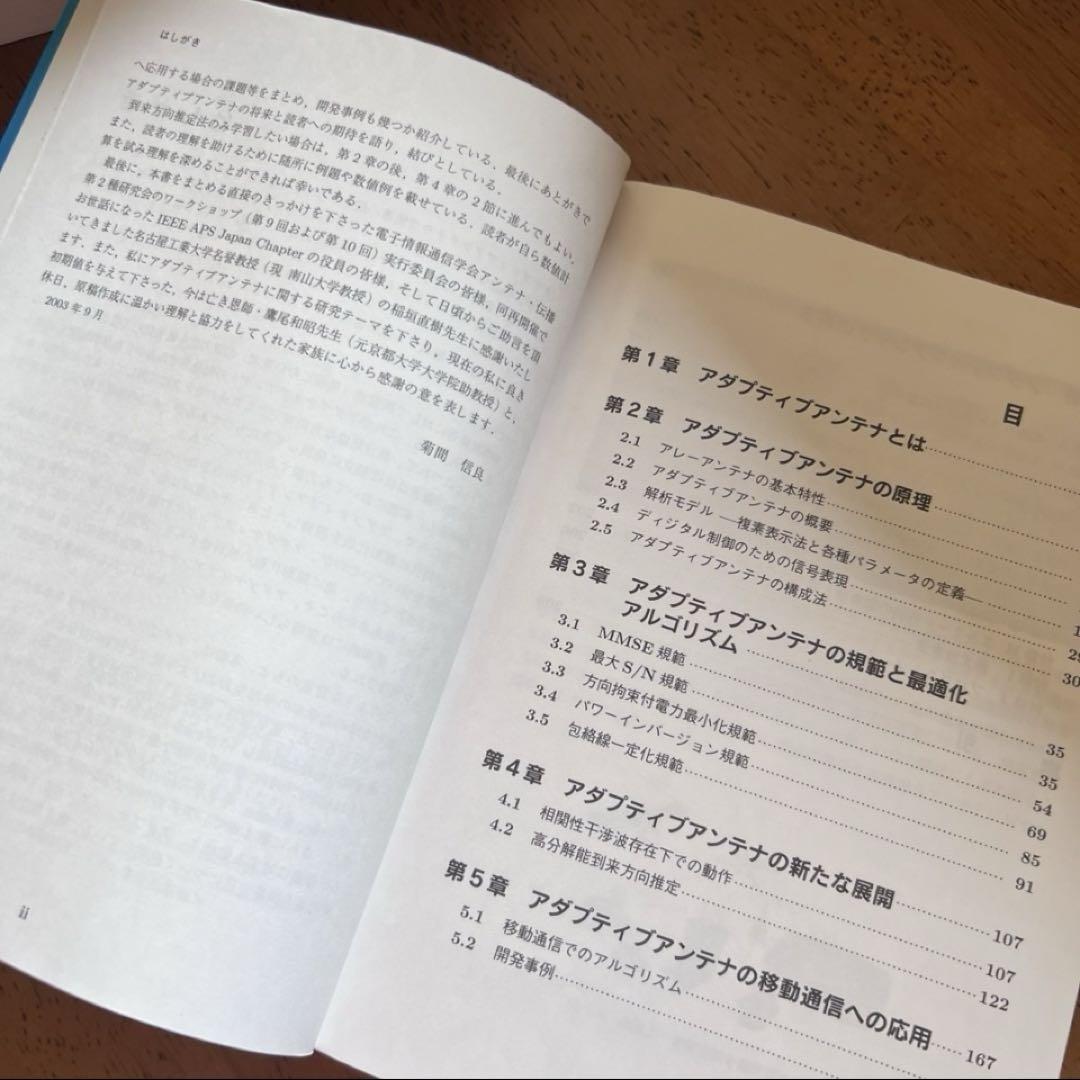 はしがき
へ応用する場合の課題等をまとめ，開発事例も幾つか紹介している．最後にあとがきで
アダプティブアンテナの将来と読者への期待を語り，結びとしている．
到来方向推定法のみ学習したい場合は，第2章の後，第4章の2節に進んでもよい．
また，読者の理解を助けるために随所に例題や数値例を載せている．読者が自ら数値計
算を試み理解を深めることができれば幸いである．
最後に，本書をまとめる直接のきっかけを下さった電子情報通信学会アンテナ・伝播
第2種研究会のワークショップ（第9回および第10回）実行委員会の皆様，同再開催で
お世話になったIEEE APS Japan Chapterの役員の皆様，そして日頃からご助言を頂
いてきました名古屋工業大学名誉教授（現 南山大学教授）の稲垣直樹先生に感謝いたし
ます．また，私にアダプティブアンテナに関する研究テーマを下さり，現在の私に良き
初期値を与えて下さった，今は亡き恩師・鷹尾和昭先生（元京都大学大学院助教授）と，
休日，原稿作成に温かい理解と協力をしてくれた家族に心から感謝の意を表します．
2003年9月
菊間 信良
ii
目
第1章 アダプティブアンテナとは
第2章 アダプティブアンテナの原理
2.1 アレーアンテナの基本特性
2.2 アダプティブアンテナの概要
2.3 解析モデル ―複素表示法と各種パラメータの定義―
2.4 ディジタル制御のための信号表現 29
2.5 アダプティブアンテナの構成法 30
第3章 アダプティブアンテナの規範と最適化
アルゴリズム 35
3.1 MMSE規範 35
3.2 最大S/N規範 54
3.3 方向拘束付電力最小化規範 69
3.4 パワーインバージョン規範 85
3.5 包絡線一定化規範 91
第4章 アダプティブアンテナの新たな展開 107
4.1 相関性干渉波存在下での動作 107
4.2 高分解能到来方向推定 122
第5章 アダプティブアンテナの移動通信への応用 167
5.1 移動通信でのアルゴリズム
5.2 開発事例